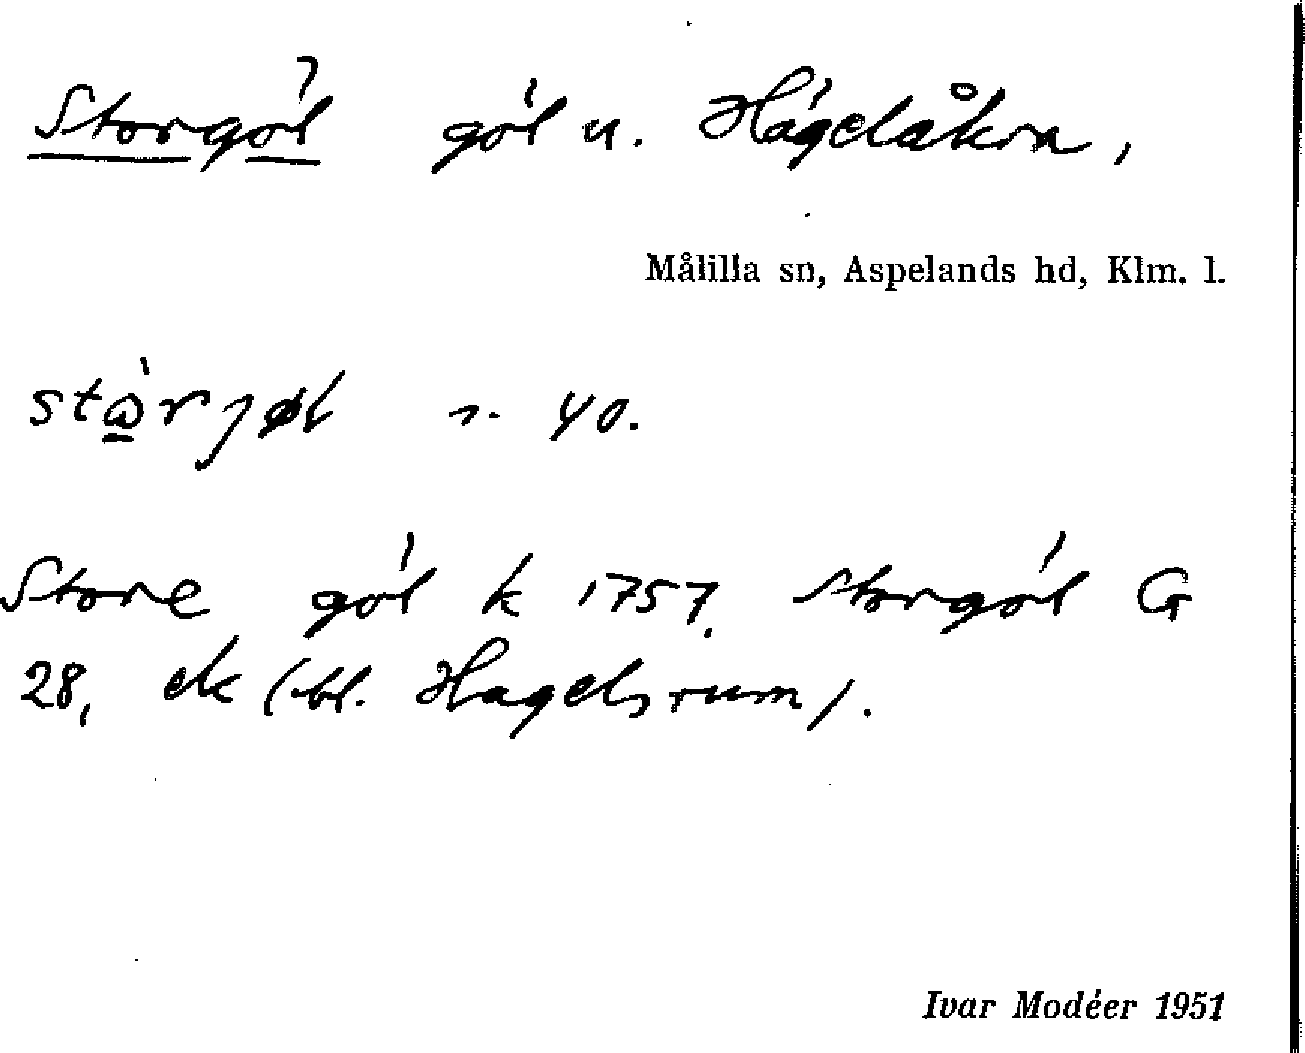 Storgöl göl u. Hägelåkra,
Målilla sn, Aspelands hd, Klm. l.
40.
Store göl k 1757. Storgöl G
28, ek (bl. Hagelsrum).
Ivar Modéer 1951